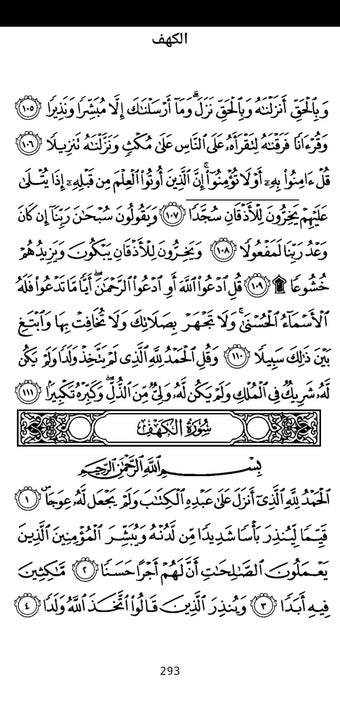 الكهف
وَبِالْحَقِّ أَنزَلْنَٰهُ وَبِالْحَقِّ نَزَلَ ۗ وَمَآ أَرْسَلْنَٰكَ إِلَّا مُبَشِّرًا وَنَذِيرًا ١٠٥
وَقُرْءَانًا فَرَقْنَٰهُ لِتَقْرَأَهُۥ عَلَى النَّاسِ عَلَىٰ مُكْثٍ وَنَزَّلْنَٰهُ تَنزِيلًا ١٠٦
قُلْ ءَامِنُوا۟ بِهِۦٓ أَوْ لَا تُؤْمِنُوٓا۟ ۚ إِنَّ الَّذِينَ أُوتُوا۟ الْعِلْمَ مِن قَبْلِهِۦٓ إِذَا يُتْلَىٰ
عَلَيْهِمْ يَخِرُّونَ لِلْأَذْقَانِ سُجَّدًا ١٠٧ وَيَقُولُونَ سُبْحَٰنَ رَبِّنَآ إِن كَانَ
وَعْدُ رَبِّنَا لَمَفْعُولًا ١٠٨ وَيَخِرُّونَ لِلْأَذْقَانِ يَبْكُونَ وَيَزِيدُهُمْ
خُشُوعًا ۩ ١٠٩ قُلِ ادْعُوا۟ اللَّهَ أَوِ ادْعُوا۟ الرَّحْمَٰنَ ۖ أَيًّا مَّا تَدْعُوا۟ فَلَهُ
الْأَسْمَآءُ الْحُسْنَىٰ ۚ وَلَا تَجْهَرْ بِصَلَاتِكَ وَلَا تُخَافِتْ بِهَا وَابْتَغِ
بَيْنَ ذَٰلِكَ سَبِيلًا ١١٠ وَقُلِ الْحَمْدُ لِلَّهِ الَّذِى لَمْ يَتَّخِذْ وَلَدًا وَلَمْ يَكُن
لَّهُۥ شَرِيكٌ فِى الْمُلْكِ وَلَمْ يَكُن لَّهُۥ وَلِىٌّ مِّنَ الذُّلِّ ۖ وَكَبِّرْهُ تَكْبِيرًۢا ١١١
سُورَةُ الكَهْفِ
بِسْمِ اللَّهِ الرَّحْمَٰنِ الرَّحِيمِ
الْحَمْدُ لِلَّهِ الَّذِىٓ أَنزَلَ عَلَىٰ عَبْدِهِ الْكِتَٰبَ وَلَمْ يَجْعَل لَّهُۥ عِوَجَا ۜ ١
قَيِّمًا لِّيُنذِرَ بَأْسًا شَدِيدًا مِّن لَّدُنْهُ وَيُبَشِّرَ الْمُؤْمِنِينَ الَّذِينَ
يَعْمَلُونَ الصَّٰلِحَٰتِ أَنَّ لَهُمْ أَجْرًا حَسَنًا ٢ مَّٰكِثِينَ
فِيهِ أَبَدًا ٣ وَيُنذِرَ الَّذِينَ قَالُوا۟ اتَّخَذَ اللَّهُ وَلَدًا ٤
293